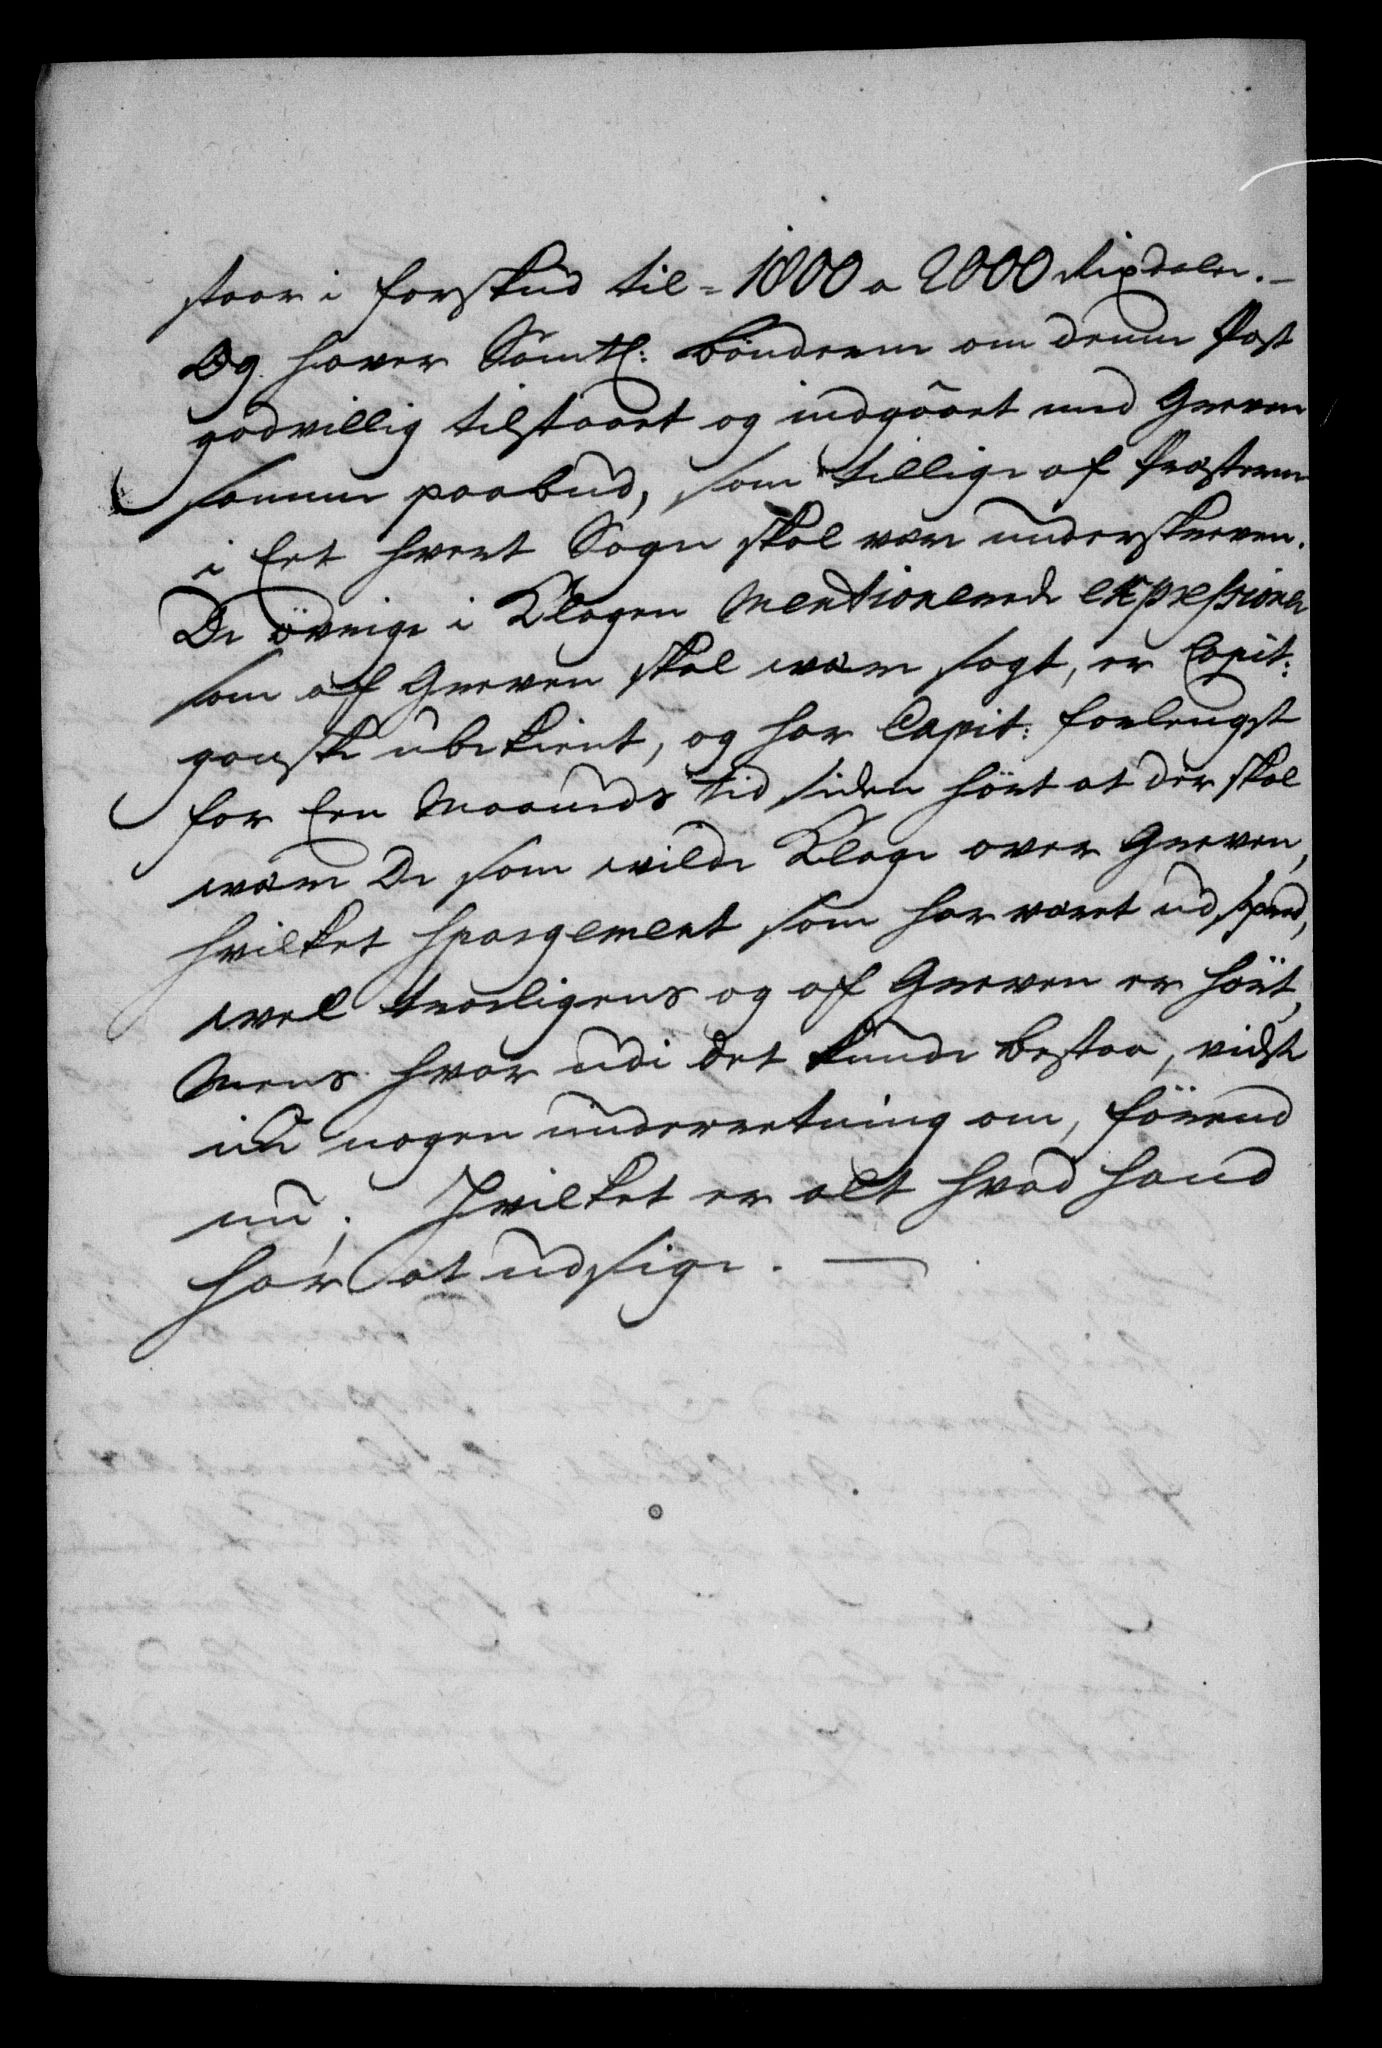 staar i forskud til = 1800 a 2000 Rixdaler. –
Og haver Samtl: bönderne om denne Post
godvillig tilstaaet og indgaaet med Greven
samme paabud, som tillige af Præsterne
i Eet hvert Sogn skal være underskreven.
De övrige i Klagen Mentionerede expressioner
som af Greven skal være sagt, er Capit:
ganske ubekient, og har Capit: forlengst
for Een Maaneds tid siden hört at der skal
være De som vilde Klage over Greven,
hvilket spargement som har været udspred,
vel troeligens og af Greven er hört,
Mens hvor udi det kunde bestaa, vidste
nogen underretning om, förend
nu; Hvilket er alt hvad hand
har at udsige. —